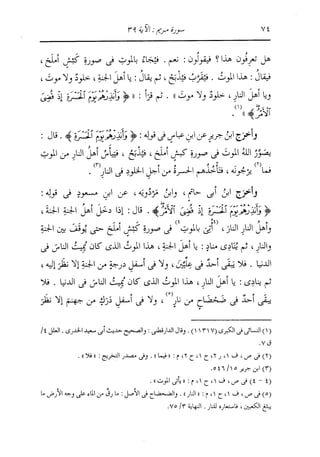 ٧٤ سورة مريم : الآية ٣٩
هل تعرفون هذا ؟ فيقولون : نعم . فيُجَاءُ بالموتِ فى صورةِ كَبْشٍ أملحَ ،
فيقالُ : هذا الموتُ . فيُقَرَّبُ فيُذْبَحُ ، ثم يقالُ : يا أهلَ الجنةِ ، خلودٌ ولا موتَ ،
ويا أهلَ النارِ ، خلودٌ ولا موتَ » . ثم قرَأ : « ﴿ وَأَنذِرْهُمْ يَوْمَ الْحَسْرَةِ إِذْ قُضِيَ
الْأَمْرُ ﴾ » (١) .
وأخرَج ابنُ جريرٍ عن ابنِ عباسٍ فى قوله : ﴿ وَأَنذِرْهُمْ يَوْمَ الْحَسْرَةِ ﴾ . قال :
يصوِّرُ اللهُ الموتَ فى صورةِ كبشٍ أملحَ ، فيُذْبَحُ ، فيَيْأَسُ أهلُ النارِ من الموتِ
فما (٢) يرْجُونَه ، فتأخُذُهم الحسرةُ من أجلِ الخلودِ فى النارِ (٣) .
وأخرَج ابنُ أبى حاتمٍ ، وابنُ مَرْدُويَه ، عن ابنِ مسعودٍ فى قوله :
﴿ وَأَنذِرْهُمْ يَوْمَ الْحَسْرَةِ إِذْ قُضِيَ الْأَمْرُ ﴾ . قال : إذا دخَل أهلُ الجنةِ الجنةَ ،
وأهلُ النارِ النارَ ، (٤) أُتِىَ بالموتِ (٤) فى صورةِ كَبْشٍ أملحَ حتى يُوقَفَ بين الجنةِ
والنارِ ، ثم يُنادِى منادٍ : يا أهلَ الجنةِ ، هذا الموتُ الذى كان يُمِيتُ الناسَ فى
الدنيا . فلا يَبْقَى أحدٌ فى عِلِّيِّينَ ، ولا فى أسفلِ درجةٍ من الجنةِ إلا نظَر إليه ،
ثم ينادِى : يا أهلَ النارِ ، هذا الموتُ الذى كان يُمِيتُ الناسَ فى الدنيا . فلا
يبقَى أحدٌ فى ضَحْضَاحٍ من نارٍ (٥) ، ولا فى أسفلِ دَرَكٍ من جهنمَ إلا نظَر
(١) النسائى فى الكبرى (١١٣١٧) . وقال الدارقطنى : والصحيح حديث أبى سعيد الخدرى . العلل ٤/
ق ٧ .
(٢) فى ص ، ف ١ ، ر ٢ ، ح ١ ، ح ٢ ، م : « فيما » . وفى مصدر التخريج : « فلا » .
(٣) ابن جرير ١٥/ ٥٤٦ .
(٤ - ٤) فى ص ، ف ١ ، ح ١ ، م : « يأتى الموت » .
(٥) فى ص ، ف ١ ، ح ١ ، م : « النار » . والضحضاح فى الأصل : ما رق من الماء على وجه الأرض ما
يبلغ الكعبين ، فاستعاره للنار . النهاية ٣/ ٧٥ .